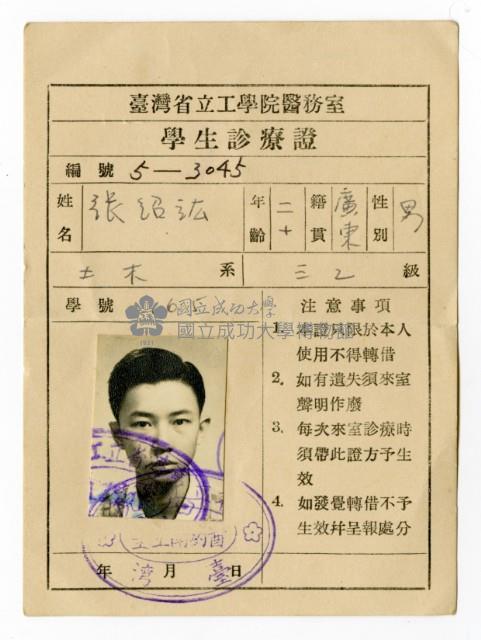 臺灣省立工學院醫務室
學生診療證
編號 5—3045
姓名 張紹訟 年齡 二十 籍貫 廣東 性別 男
土木 系 三乙 級
學號 6
國立成功大學
國立成功大學博物館
1931
注意事項
1. 本證只限於本人
使用不得轉借
2. 如有遺失須來室
聲明作廢
3. 每次來室診療時
須帶此證方予生
效
4. 如發覺轉借不予
生效幷呈報處分
年 月 日
臺 灣